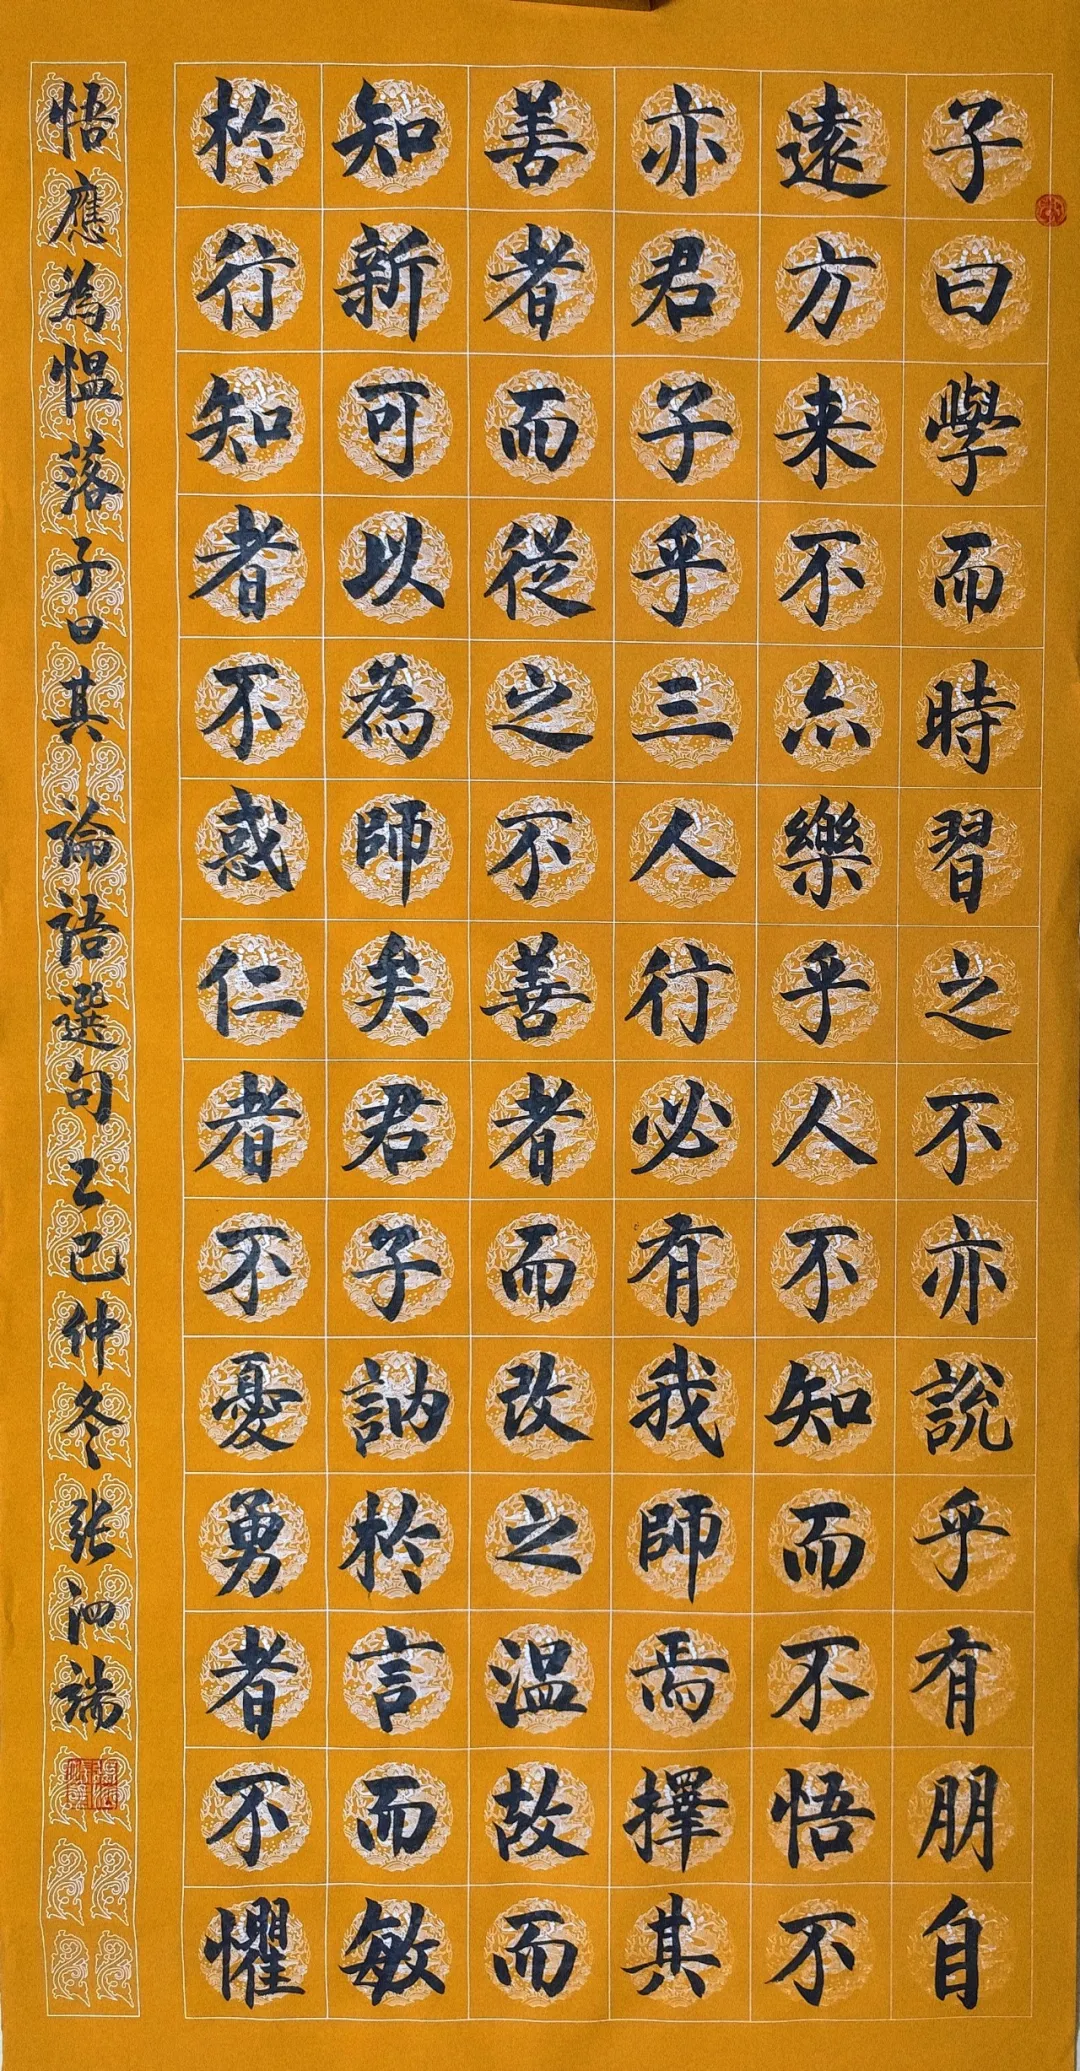 子曰學而時習之不亦説乎有朋自
遠方来不亦樂乎人不知而不悟不
亦君子乎三人行必有我師焉擇其
善者而從之不善者而改之温故而
知新可以為師矣君子訥於言而敏
於行知者不惑仁者不憂勇者不懼
悟應為愠落子曰其論語選句乙巳仲冬张泗瑞